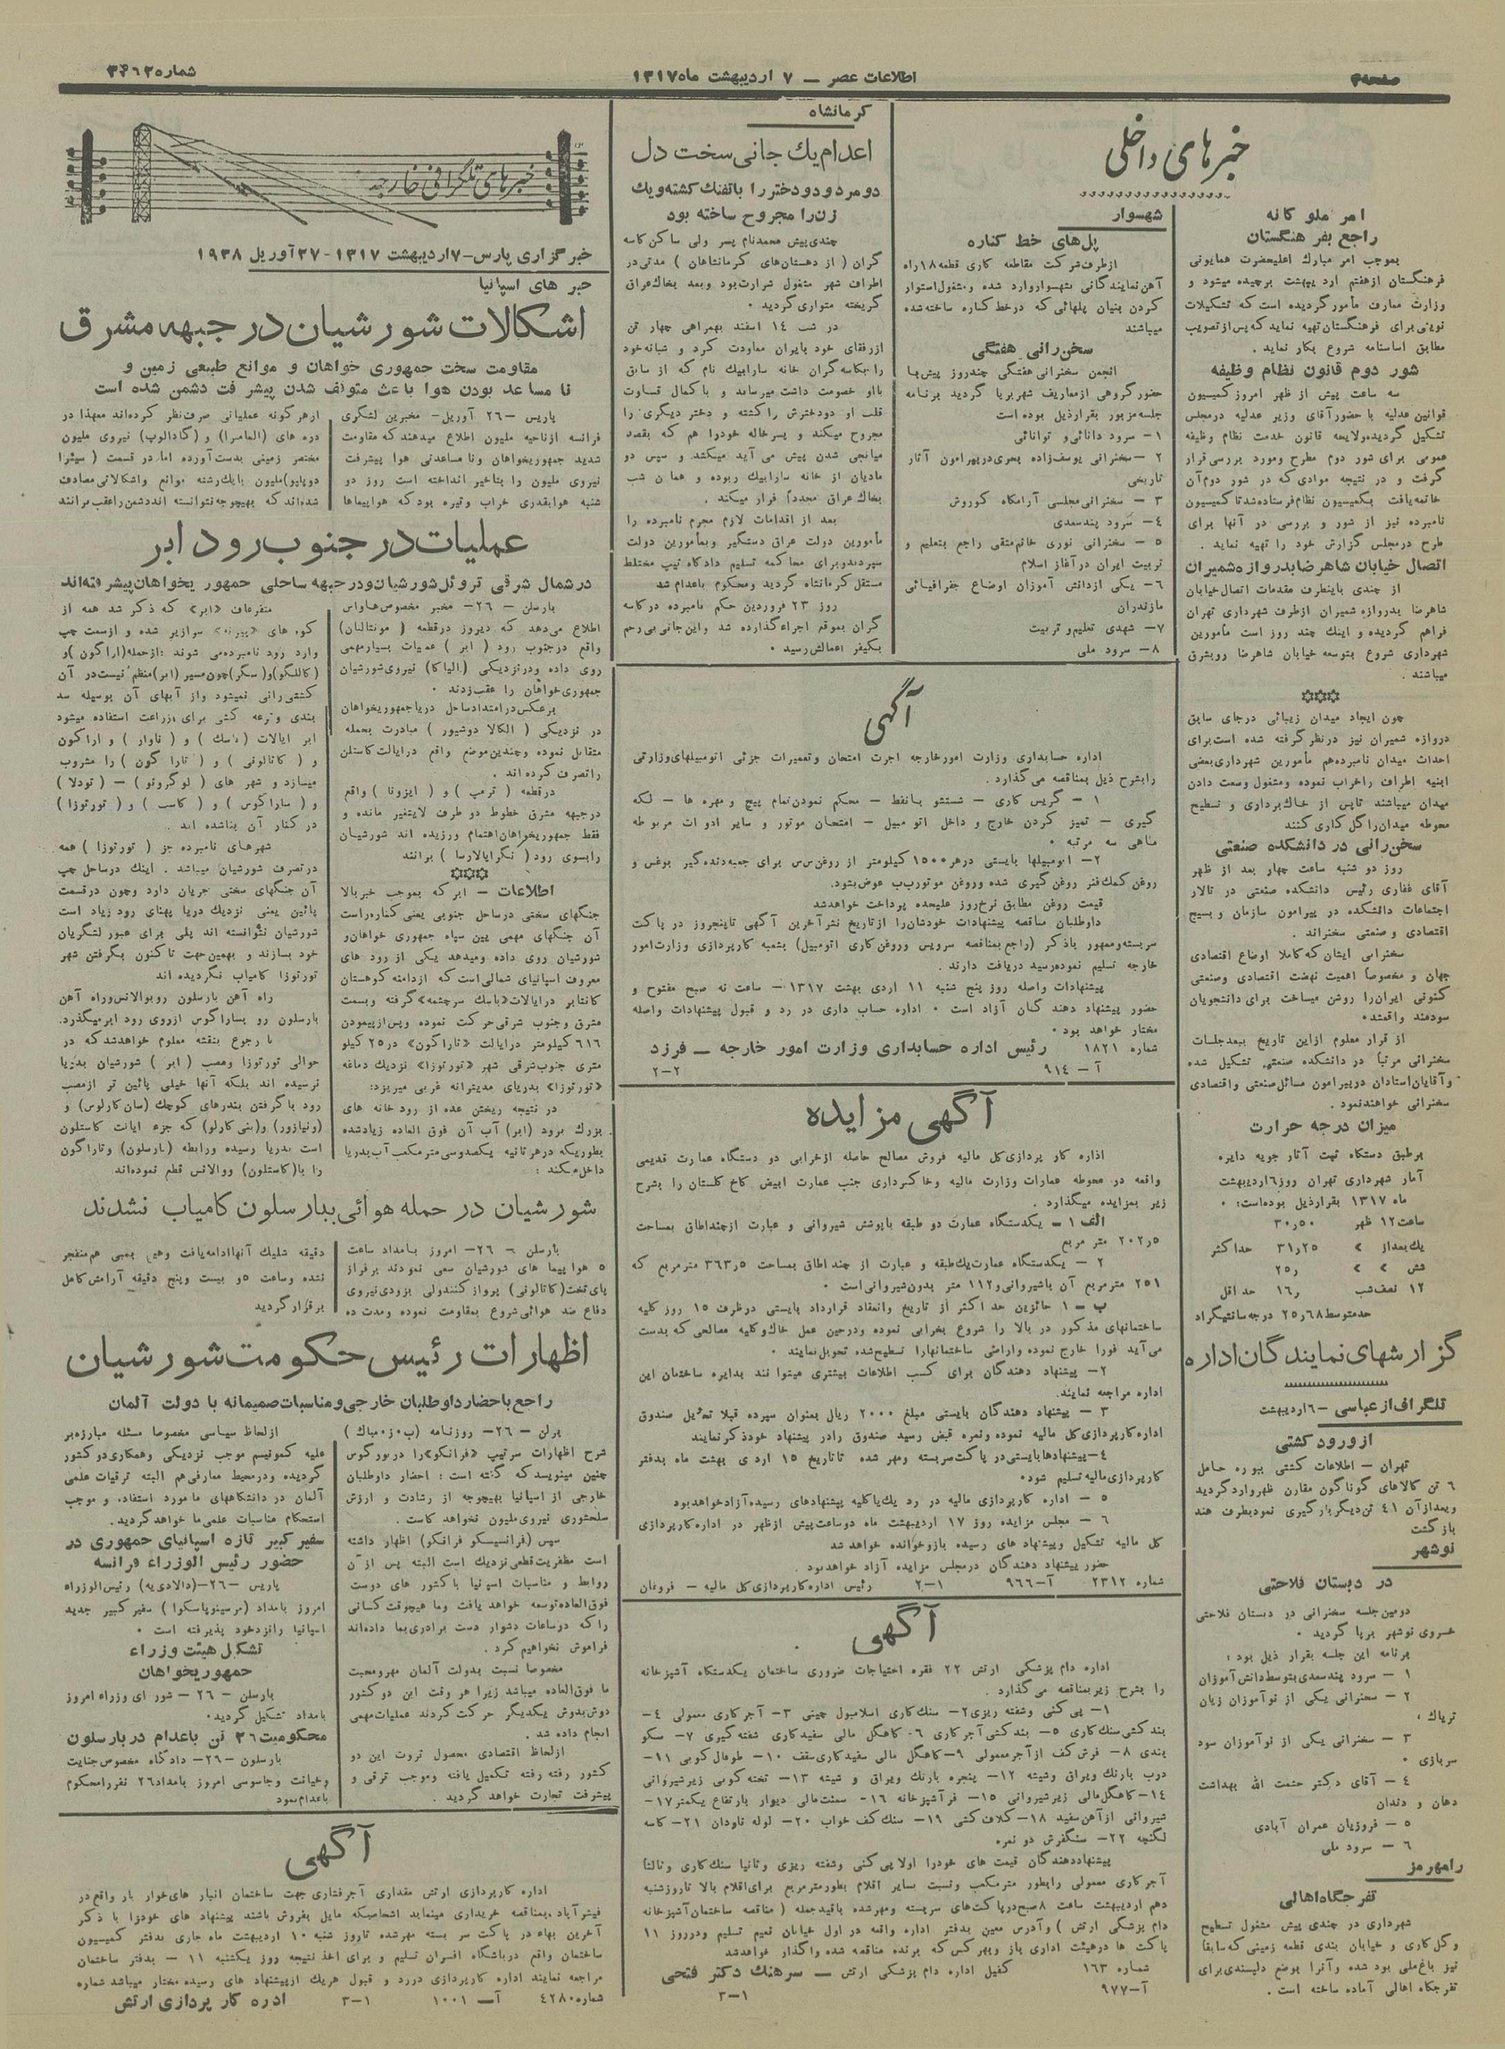 صفحه ۳
اطلاعات عصر — ۷ اردیبهشت ماه ۱۳۱۷
شماره ۳۴۶۲
خبرهای داخلی
امر ملوکانه
راجع بفرهنگستان
بموجب امر مبارك اعلیحضرت همایونی
فرهنگستان از هفتم اردیبهشت برچیده میشود و
وزارت معارف مأمور گردیده است که تشکیلات
نوینی برای فرهنگستان تهیه نماید که پس از تصویب
مطابق اساسنامه شروع بکار نماید .
شور دوم قانون نظام وظیفه
سه ساعت پیش از ظهر امروز کمیسیون
قوانین عدلیه با حضور آقای وزیر عدلیه در مجلس
تشکیل گردیده و لایحه قانون خدمت نظام وظیفه
عمومی برای شور دوم مطرح و مورد بررسی قرار
گرفت و در نتیجه موادی که در شور دوم آن
خاتمه یافت بکمیسیون نظام فرستاده شد تا کمیسیون
نامبرده نیز از شور و بررسی در آنها برای
طرح در مجلس گزارش خود را تهیه نماید .
اتصال خیابان شاهرضا بدروازه شمیران
از چندی باینطرف مقدمات اتصال خیابان
شاهرضا بدروازه شمیران از طرف شهرداری تهران
فراهم گردیده و اینك چند روز است مأمورین
شهرداری شروع بتوسعه خیابان شاهرضا رو بشرق
میباشند .
چون ایجاد میدان زیبائی در جای سابق
دروازه شمیران نیز در نظر گرفته شده است برای
احداث میدان نامبرده هم مأمورین شهرداری بعضی
ابنیه اطراف را خراب نموده و مشغول وسعت دادن
میدان میباشند تا پس از خاك برداری و تسطیح
محوطه میدان را گل کاری کنند
سخن رانی در دانشکده صنعتی
روز دو شنبه ساعت چهار بعد از ظهر
آقای غفاری رئیس دانشکده صنعتی در تالار
اجتماعات دانشکده در پیرامون سازمان و بسیج
اقتصادی و صنعتی سخنراند .
سخنرانی ایشان که کاملا اوضاع اقتصادی
جهان و مخصوصاً اهمیت نهضت اقتصادی و صنعتی
کنونی ایران را روشن میساخت برای دانشجویان
سودمند واقع شد
از قرار معلوم از این تاریخ ببعد جلسات
سخنرانی مرتباً در دانشکده صنعتی تشکیل شده
و آقایان استادان در پیرامون مسائل صنعتی و اقتصادی
سخنرانی خواهند نمود .
میزان درجه حرارت
برطبق دستگاه ثبت آثار جویه دایره
آمار شهرداری تهران روز ۶ اردیبهشت
ماه ۱۳۱۷ بقرار ذیل بوده است :
ساعت ۱۲ ظهر ۳۰٫۵۰
یك بعد از » ۳۱٫۲۵ حداکثر
شش » » ۲۵٫
۱۲ نصف شب ۱۶٫ حد اقل
حد متوسط ۲۵٫۶۸ درجه سانتیگراد
گزارشهای نمایندگان اداره
تلگرافی از عباسی — ۶ اردیبهشت
از ورود کشتی
تهران — اطلاعات کشتی بپوره حامل
۶ تن کالاهای گوناگون مقارن ظهر وارد گردید
و بعد از آن ۴۱ تن دیگر بارگیری نمود بطرف هند
بازگشت
نوشهر
در دبستان فلاحتی
دومین جلسه سخنرانی در دبستان فلاحتی
خسروی نوشهر برپا گردید .
برنامه این جلسه بقرار ذیل بود :
۱ — سرود پند سعدی بتوسط دانش آموزان
۲ — سخنرانی یکی از نوآموزان زیان
تریاك ،
۳ — سخنرانی یکی از نوآموزان سود
سربازی
۴ — آقای دکتر حشمت الله بهداشت
دهان و دندان
۵ — فروزیان عمران آبادی
۶ — سرود ملی
رامهرمز
تفرجگاه اهالی
شهرداری در چندی پیش مشغول تسطیح
و گل کاری و خیابان بندی قطعه زمینی که سابقاً
نیز باغ ملی بود شده و آنرا بوضع دلپسندی برای
تفرجگاه اهالی آماده ساخته است .
شهسوار
پل های خط کناره
از طرف شرکت مقاطعه کاری قطعه ۱۸ راه
آهن نمایندگانی بشهسوار وارد شده و مشغول استوار
کردن بنیان پلهائی که در خط کناره ساخته شده
میباشند
سخن رانی هفتگی
انجمن سخنرانی هفتگی چند روز پیش با
حضور گروهی از معاریف شهر برپا گردید برنامه
جلسه مزبور بقرار ذیل بوده است
۱ — سرود دانائی و توانائی
۲ — سخنرانی یوسف زاده بحری در پیرامون آثار
تاریخی
۳ — سخنرانی مجلسی آرامگاه کوروش
۴ — سرود پند سعدی
۵ — سخنرانی نوری خانم متقی راجع بتعلیم و
تربیت ایران در آغاز اسلام
۶ — یکی از دانش آموزان اوضاع جغرافیائی
مازندران
۷ — شهدی تعلیم و تربیت
۸ — سرود ملی
کرمانشاه
اعدام یك جانی سخت دل
دو مرد و دو دختر را با تفنك کشته و یك
زن را مجروح ساخته بود
چندی پیش محمد نام پسر ولی ساکن کاسه
گران ( از دهستان های کرمانشاهان ) مدتی در
اطراف شهر مشغول شرارت بود و بعد بخاك عراق
گریخته متواری گردید .
در شب ۱۴ اسفند بهمراهی چهار تن
از رفقای خود بایران معاودت کرد و شبانه خود
را بکاسه گران خانه سارا بیك نام که از سابق
با او خصومت داشت میرساند و با کمال قساوت
قلب او دو دخترش را کشته و دختر دیگری را
مجروح میکند و پسر خاله خود را هم که بقصد
میانجی شدن پیش می آید میکشد و سپس دو
مادیان از خانه سارا بیك ربوده و همان شب
بخاك عراق مجدداً فرار میکند .
بعد از اقدامات لازم مجرم نامبرده را
مأمورین دولت عراق دستگیر و بمأمورین دولت
سپردند و برای محاکمه تسلیم دادگاه تیپ مختلط
مستقل کرمانشاه گردید و محکوم باعدام شد
روز ۲۳ فروردین حکم نامبرده در کاسه
گران بموقع اجراء گذارده شد و این جانی بی رحم
بکیفر اعمالش رسید .
آگهی
اداره حسابداری وزارت امور خارجه اجرت امتحان و تعمیرات جزئی اتومبیلهای وزارتی
را بشرح ذیل بمناقصه می گذارد .
۱ — گریس کاری — شستشو با نفط — محکم نمودن تمام پیچ و مهره ها — لکه
گیری — تمیز کردن خارج و داخل اتومبیل — امتحان موتور و سایر ادوات مربوطه
ماهی سه مرتبه .
۲ — اتومبیلها بایستی در هر ۱۵۰۰ کیلومتر از روغن س س برای جعبه دنده گیر بوغس و
روغن کمك فنر روغن گیری شده و روغن موتور ب ب عوض بشود.
قیمت روغن مطابق نرخ روز علیحده پرداخت خواهد شد
داوطلبان مناقصه پیشنهادات خودشان را از تاریخ نشر آخرین آگهی تا پنجروز در پاکت
سربسته و ممهور با ذکر (راجع بمناقصه سرویس و روغن کاری اتومبیل) بشعبه کارپردازی وزارت امور
خارجه تسلیم نموده رسید دریافت دارند .
پیشنهادات واصله روز پنج شنبه ۱۱ اردی بهشت ۱۳۱۷ — ساعت نه صبح مفتوح و
حضور پیشنهاد دهندگان آزاد است . اداره حسابداری در رد و قبول پیشنهادات واصله
مختار خواهد بود .
شماره ۱۸۲۱ رئیس اداره حسابداری وزارت امور خارجه — فرزد
آ — ۹۱۴ ۲-۲
آگهی مزایده
اداره کارپردازی کل مالیه فروش مصالح حاصله از خرابی دو دستگاه عمارت قدیمی
واقعه در محوطه عمارات وزارت مالیه و خاکبرداری جنب عمارت ابیض کاخ گلستان را بشرح
زیر بمزایده میگذارد .
الف ۱ — یکدستگاه عمارت دو طبقه با پوشش شیروانی و عبارت از چند اطاق بمساحت
۲۰۲٫۵ متر مربع
۲ — یکدستگاه عمارت یك طبقه و عبارت از چند اطاق بمساحت ۳۶۳٫۵ متر مربع که
۲۵۱ متر مربع آن با شیروانی و ۱۱۲ متر بدون شیروانی است .
ب — ۱ حائزین حد اکثر از تاریخ وانعقاد قرارداد بایستی در ظرف ۱۵ روز کلیه
ساختمانهای مذکور در بالا را شروع بخرابی نموده و در حین عمل خاك و کلیه مصالحی که بدست
می آید فوراً خارج نموده و اراضی ساختمانها را تسطیح شده تحویل نمایند .
۲ — پیشنهاد دهندگان برای کسب اطلاعات بیشتری میتوانند بدایره ساختمان این
اداره مراجعه نمایند.
۳ — پیشنهاد دهندگان بایستی مبلغ ۲۰۰۰ ریال بعنوان سپرده قبلا تحویل صندوق
اداره کارپردازی کل مالیه نموده و نمره قبض رسید صندوق را در پیشنهاد خود ذکر نمایند
۴ — پیشنهادها بایستی در پاکت سربسته و مهر شده تا تاریخ ۱۵ اردی بهشت ماه بدفتر
کارپردازی مالیه تسلیم شود .
۵ — اداره کارپردازی مالیه در رد یك یا کلیه پیشنهادهای رسیده آزاد خواهد بود
۶ — مجلس مزایده روز ۱۷ اردیبهشت ماه دو ساعت پیش از ظهر در اداره کارپردازی
کل مالیه تشکیل و پیشنهاد های رسیده باز و خوانده خواهد شد
حضور پیشنهاد دهندگان در مجلس مزایده آزاد خواهد بود.
شماره ۲۳۱۲ آ—۹۶۶ ۲-۱ رئیس اداره کارپردازی کل مالیه — فروغان
آگهی
اداره دام پزشکی ارتش ۲۲ فقره احتیاجات ضروری ساختمان یکدستگاه آشپزخانه
را بشرح زیر بمناقصه می گذارد .
۱ — پی کنی و شفته ریزی ۲ — سنك کاری اسلامبول چینی ۳ — آجر کاری معمولی ۴ —
بند کشی سنك کاری ۵ — بند کشی آجر کاری ۶ — کاهگل مالی سفید کاری شفته گیری ۷ — سکو
بندی ۸ — فرش کف از آجر معمولی ۹ — کاهگل مالی سفید کاری سقف ۱۰ — طوفال کوبی ۱۱ —
درب با رنك و یراق و شیشه ۱۲ — پنجره با رنك و یراق و شیشه ۱۳ — تخته کوبی زیر شیروانی
۱۴ — کاهگل مالی زیر شیروانی ۱۵ — فر آشپزخانه ۱۶ — سمنت مالی دیوار بارتفاع یکمتر ۱۷ —
شیروانی از آهن سفید ۱۸ — کلاف کشی ۱۹ — سنك کف خواب ۲۰ — لوله ناودان ۲۱ — کاسه
لگنچه ۲۲ — سنگفرش دو نمره
پیشنهاد دهندگان قیمت های خود را اولا پی کنی و شفته ریزی و ثانیا سنك کاری و ثالثاً
آجر کاری معمولی را بطور متر مکعب و نسبت بسایر اقلام بطور متر مربع برای اقلام بالا تا روز شنبه
دهم اردیبهشت ساعت ۸ صبح در پاکت های سربسته و مهر شده با قید جمله ( مناقصه ساختمان آشپزخانه
دام پزشکی ارتش ) و آدرس معین بدفتر اداره واقعه در اول خیابان نعیم تسلیم و در روز ۱۱
پاکت ها در هیئت اداری باز و بهر کس که برنده مناقصه شده واگذار خواهد شد
شماره ۱۶۳ کفیل اداره دام پزشکی ارتش — سرهنك دکتر فتحی
آ—۹۷۷ ۳-۱
خبرهای تلگرافی خارجه
خبرگزاری پارس — ۷ اردیبهشت ۱۳۱۷ — ۲۷ آوریل ۱۹۳۸
خبر های اسپانیا
اشکالات شورشیان در جبهه مشرق
مقاومت سخت جمهوری خواهان و موانع طبیعی زمین و
نا مساعد بودن هوا باعث متوقف شدن پیشرفت دشمن شده است
پاریس — ۲۶ آوریل — مخبرین لشگری
فرانسه از ناحیه ملیون اطلاع میدهند که مقاومت
شدید جمهوریخواهان و نا مساعدتی هوا پیشرفت
نیروی ملیون را بتاخیر انداخته است روز دو
شنبه هوا بقدری خراب و تیره بود که هواپیماها
از هر گونه عملیاتی صرف نظر کرده اند معهذا در
دره های (المامبرا) و (گادالوپ) نیروی ملیون
مختصر زمینی بدست آورده اما در قسمت ( سیئرا
دوپلیر) ملیون با یك رشته موانع و اشکالاتی مصادف
شده اند که بهیچوجه نتوانسته اند دشمن را عقب برانند
عملیات در جنوب رود ابر
در شمال شرقی تروئل شورشیان و در جبهه ساحلی جمهوریخواهان پیشرفته اند
بارسلن — ۲۶ — مخبر مخصوص هاواس
اطلاع می دهد که دیروز در قطعه ( مونتالبان)
واقع در جنوب رود ( ابر ) عملیات بسیار مهمی
روی داده و در نزدیکی (الیاکا) نیروی شورشیان
جمهوری خواهان را عقب زدند .
برعکس در امتداد ساحل دریا جمهوریخواهان
در نزدیکی ( الکالا دوشیور ) مبادرت بحمله
متقابل نموده و چندین موضع واقع در ایالت کاستلن
را تصرف کرده اند .
در قطعه ( ترمپ ) و ( ایزونا ) واقع
در جبهه مشرق خطوط دو طرف لایتغیر مانده و
فقط جمهوریخواهان اهتمام ورزیده اند شورشیان
را بسوی رود ( نگرا پالارسا ) برانند
اطلاعات — ابر که بموجب خبر بالا
جنگهای سختی در ساحل جنوبی یعنی کناره راست
آن جنگهای مهمی بین سپاه جمهوری خواهان و
شورشیان روی داده و میدهد یکی از رود های
معروف اسپانیای شمالی است که از دامنه کوهستان
کانتابر در ایالات «باسك سرچشمه» گرفته و بسمت
مشرق و جنوب شرقی حرکت نموده و پس از پیمودن
۶۱۶ کیلومتر در ایالت «تاراگون» در ۲۵ کیلو
متری جنوب شرقی شهر «تورتوزا» نزدیك دماغه
«تورتوزا» بدریای مدیترانه غربی میریزد :
در نتیجه ریختن عده از رود خانه های
بزرك برود (ابر) آب آن فوق العاده زیاد شده
بطوریکه در هر ثانیه یکصد و سی متر مکعب آب بدریا
داخل میکند :
متفرعات «ابر» که ذکر شد همه از
کوه های «پیرنه» سرازیر شده و از سمت چپ
وارد رود نامبرده می شوند از جمله (اراگون) و
(کاللگو) و (سگر) چون مسیر (ابر) منظم نیست در آن
کشتی رانی نمیشود و از آبهای آن بوسیله سد
بندی و ترعه کشی برای زراعت استفاده میشود
ابر ایالات ( باسك ) و ( ناوار ) و اراگون
و ( کاتالونی ) و ( تاراگون ) را مشروب
میسازد و شهر های ( لوگرونو ) — ( تودلا )
و ( ساراگوس ) و ( کاسب ) و ( تورتوزا )
در کنار آن بنا شده اند .
شهر های نامبرده جز ( تورتوزا ) همه
در تصرف شورشیان میباشد . اینك در ساحل چپ
آن جنگهای سختی جریان دارد و چون در قسمت
پائین یعنی نزدیك دریا پهنای رود زیاد است
شورشیان نتوانسته اند پلی برای عبور لشگریان
خود بسازند و بهمین جهت تا کنون بگرفتن شهر
تورتوزا کامیاب نگردیده اند
راه آهن بارسلون رو بوالانس و راه آهن
بارسلون رو بساراگوس از روی رود ابر میگذرد.
با رجوع بنقشه معلوم خواهد شد که در
حوالی تورتوزا و مصب ( ابر ) شورشیان بدریا
نرسیده اند بلکه آنها خیلی پائین تر از مصب
رود با گرفتن بندرهای کوچك (سان کارلوس) و
(ونیازور) و (بنی کارلو) که جزء ایالت کاستلون
است بدریا رسیده و رابطه (بارسلون) و تاراگون
را با (کاستلون) و والانس قطع نموده اند.
شورشیان در حمله هوائی ببارسلون کامیاب نشدند
بارسلن — ۲۶ — امروز بامداد ساعت
۵ هواپیما های شورشیان سعی نمودند بر فراز
پای تخت (کاتالونی) پرواز کنند ولی بزودی نیروی
دفاع ضد هوائی شروع بمقاومت نموده و مدت ده
دقیقه شلیك آنها ادامه یافت و هیچ بمبی هم منفجر
نشده و ساعت ۵ و بیست و پنج دقیقه آرامش کامل
برقرار گردید
اظهارات رئیس حکومت شورشیان
راجع باحضار داوطلبان خارجی و مناسبات صمیمانه با دولت آلمان
برلن — ۲۶ — روزنامه (ب . ز . میتاك )
شرح اظهارات سرتیپ «فرانکو» را در بورگوس
چنین مینویسد که گفته است : احضار داوطلبان
خارجی از اسپانیا بهیچوجه از رشادت و ارزش
سلحشوری نیروی ملیون نخواهد کاست .
سپس (فرانسیسکو فرانکو) اظهار داشته
است مظفریت قطعی نزدیك است البته پس از آن
روابط و مناسبات اسپنیا با کشور های دوست
فوق العاده توسعه خواهد یافت و ما هیچوقت کسانی
را که در ساعات دشوار دست برادری بما داده اند
فراموش نخواهیم کرد .
مخصوصا نسبت بدولت آلمان مهر و محبت
ما فوق العاده میباشد زیرا هر وقت این دو کشور
دوش بدوش یکدیگر حرکت کردند عملیات مهمی
انجام داده شد .
از لحاظ اقتصادی محصول ثروت این دو
کشور رفته رفته تکمیل یافته و موجب ترقی و
پیشرفت تجارت خواهد گردید .
از لحاظ سیاسی مخصوصا مسئله مبارزه بر
علیه کمونیسم موجب نزدیکی و همکاری دو کشور
گردیده و در محیط معارفی هم البته ترقیات علمی
آلمان در دانشگاههای ما مورد استفاده و موجب
استحکام مناسبات علمی ما خواهد گردید.
سفیر کبیر تازه اسپانیای جمهوری در
حضور رئیس الوزراء فرانسه
پاریس — ۲۶ — (دالادیه) رئیس الوزراء
امروز بامداد (مرسینو پاسکوا ) سفیر کبیر جدید
اسپانیا را نزد خود پذیرفته است .
تشکیل هیئت وزراء
جمهوریخواهان
بارسلن — ۲۶ — شورای وزراء امروز
بامداد تشکیل گردید .
محکومیت ۲۶ تن باعدام در بارسلون
بارسلون — ۲۶ — دادگاه مخصوص جنایت
و خیانت و جاسوسی امروز بامداد ۲۶ نفر را محکوم
باعدام نمود
آگهی
اداره کارپردازی ارتش مقداری آجر فشاری جهت ساختمان انبار های خوار بار واقع در
فیشر آباد بمناقصه خریداری مینماید اشخاصیکه مایل بفروش باشند پیشنهاد های خود را با ذکر
آخرین بهاء در پاکت سر بسته مهر شده تا روز شنبه ۱۰ اردیبهشت ماه جاری بدفتر کمیسیون
ساختمان واقع در باشگاه افسران تسلیم و برای اخذ نتیجه روز یکشنبه ۱۱ — بدفتر ساختمان
مراجعه نمایند اداره کارپردازی در رد و قبول هریك از پیشنهاد های رسیده مختار میباشد شماره
شماره ۴۲۸۰ آ — ۱۰۰۱ ۳-۱ اداره کار پردازی ارتش